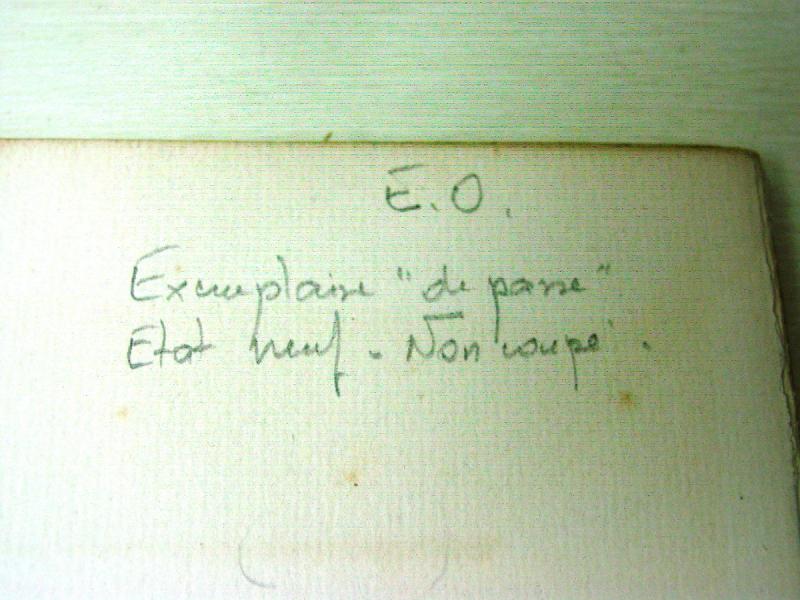 E.O.
Exemplaire "de passe"
Etat neuf - Non coupé.